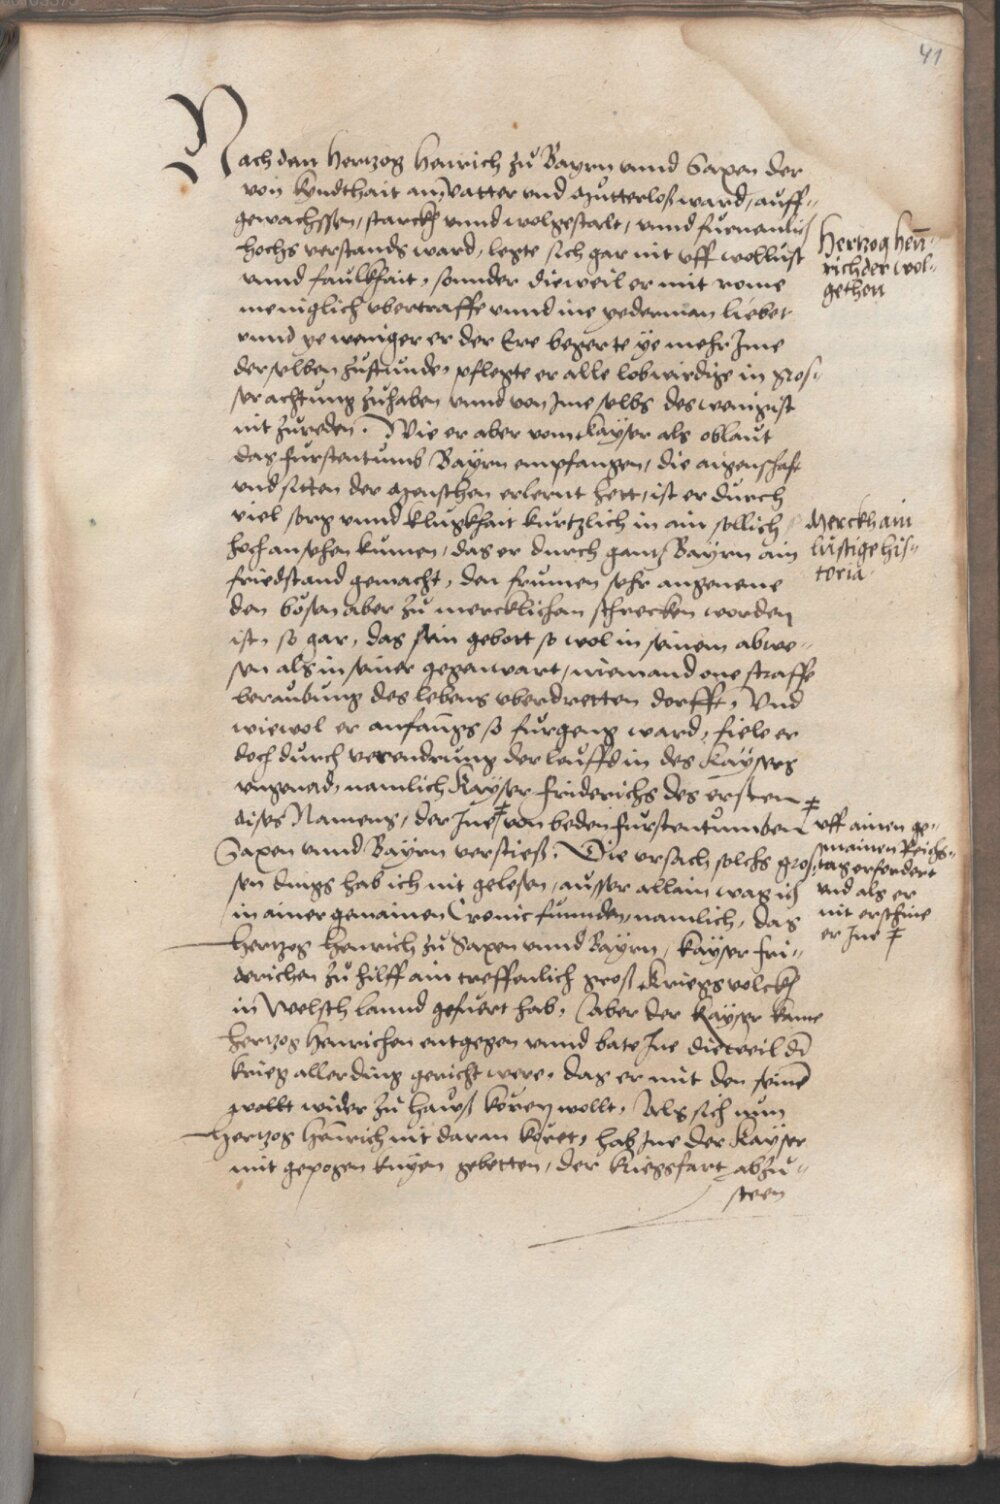 41
Nach dem Hertzog Henrich zů Bayrn vnnd Saxen der
von kyndthait an, vatter vnd mutterloß ward, auff-
gewachssen, starckh vnnd wolgestalt, vnnd furnemlich
hochs verstands ward, legte sich gar nit vff wollust
vnnd faulkhait, sonnder dieweil er mit rome
meniglich vbertraffe vnnd ine yederman liebet
vnnd ye weniger er der Ere begerte ye mehr Ime
derselben zustunde, pflegte er alle lobwirdige in gros-
ser achtung zuhaben vnnd von Ime selbs des wenigist
nit zureden. Wie er aber vom kayser als oblaut
das furstentumb Bayrn empfangen, die aigenschafft
vnd sitten der menschen erlernt hett, ist er durch
viel sorg vnnd klugkhait kurtzlich in ain sollich
hoch ansehen kumen, das er durch gantz Bayrn ain
friedstand gemacht, den frumen sehr angeneme
den bösen aber zů mercklichen schrecken worden
ist, so gar, das sein gebott so wol in seinem abwe-
sen als in seiner gegenwart, niemand one straffe
beraubung des lebens vberdretten dorfft, Vnd
wiewol er anfangs so furgeng ward, fiele er
doch durch verendrung der leuffd in des Kaysers
vngenad, namlich Kayser Friderichs des ersten
dises Namens, der Ine ‡ von beden furstentumben
Saxen vnnd Bayrn verstieß. Die vrsach solchs gros-
sen dings hab ich nit gelesen, ausser allain was ich
in ainer gemainen Cronic funnden, namlich, das
Hertzog Henrich zů Saxen vnnd Bayrn, kayser Fri-
derichen zů hilff ain treffenlich groß kriegsvolckh
in Welsch lannd gefuert hab, Aber der kayser kame
Hertzog Henrichen entgegen vnnd bate Ine dieweil d̄
krieg aller ding gericht were, das er mit den seinē
wollt wider zů hauß keren wollt, Als sich nun
Hertzog Hēnrich nit daran keret, hab Ine der Kayser
mit gepogen knyen gebetten, der kriegsfart abzu-
steen
Hertzog Hen̄-
rich der wol-
gethon
Merckh ain
lustige his-
toria
‡ vff ainen ge-
mainen Reichs-
tag erfordert
vnd als er
nit erschine
er Ine ‡